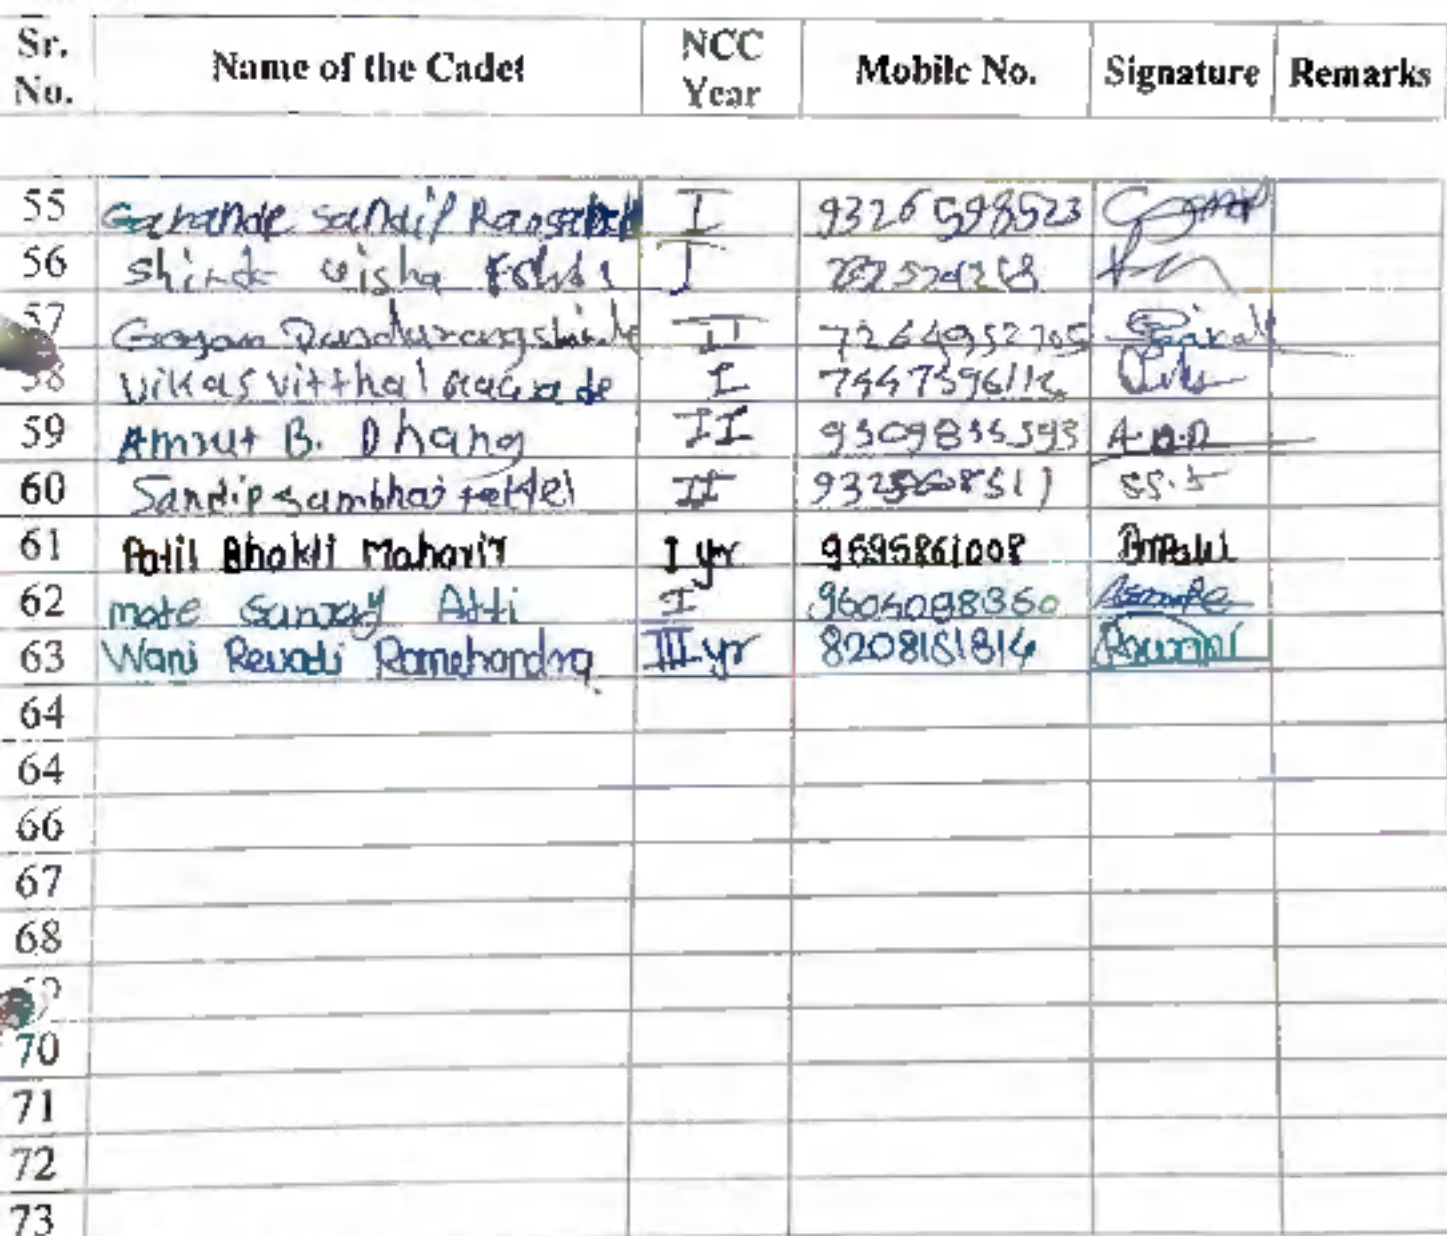 Sr. No. Name of the Cadet NCC Year Mobile No. Signature Remarks
55 Garande Sandip I 9326598523
56 Shinde I
57 Gajan Pandurang shinde II 7264952705
58 Vikas Vitthal I
59 Amrut B. Dhang II 9309835593 A.B.D
60 Sandip sambhaji II ss.5
61 Patil Bhakti Mahavir I yr 9595861008 BMPatil
62 mote Sanjay Atti I 9604098350
63 Wani Revati Ramchandra III yr 8208151814
64
64
66
67
68
69
70
71
72
73